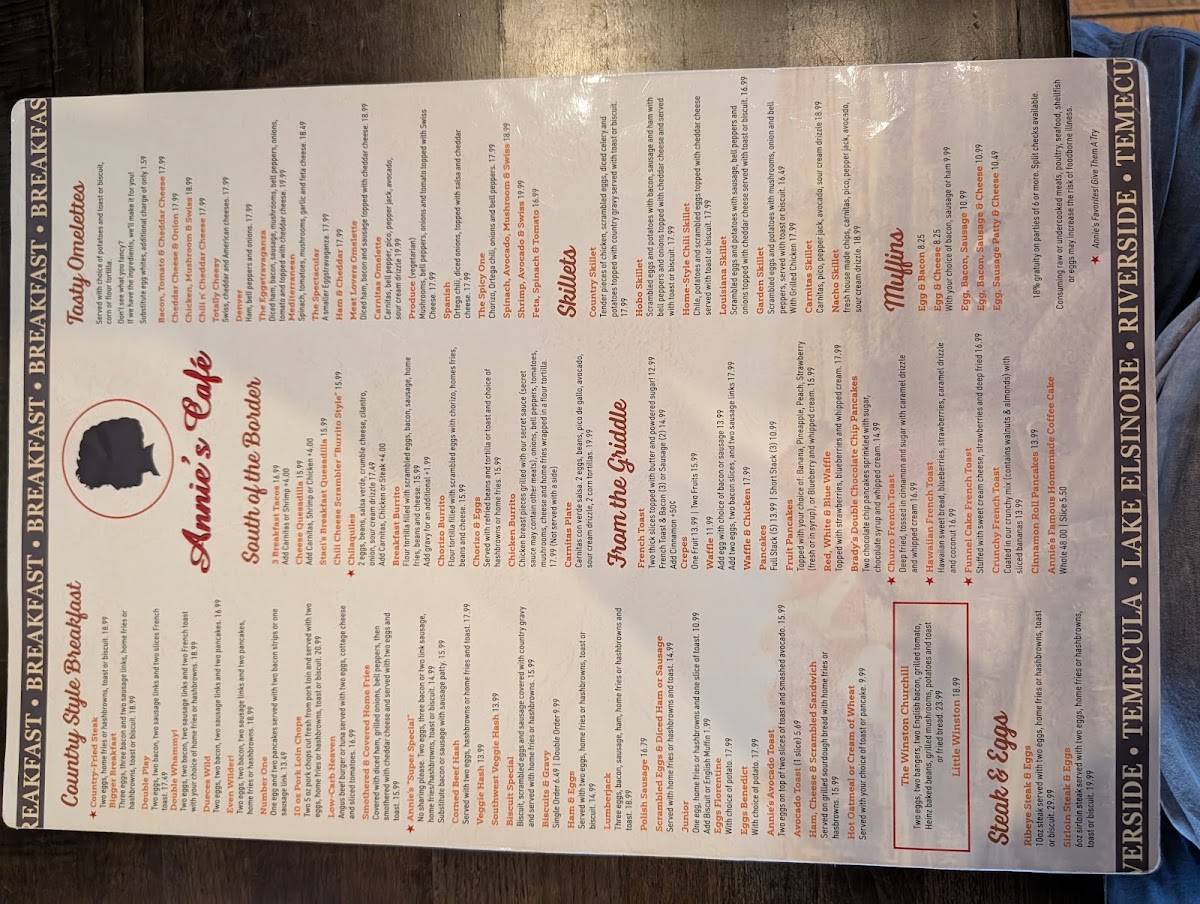 REAKFAST • BREAKFAST • BREAKFAST • BREAKFAST • BREAKFAST • BREAKFAS
Country Style Breakfast
★ Country-Fried Steak
Two eggs, home fries or hashbrowns, toast or biscuit. 18.99
Hungry Man Breakfast
Three eggs, three bacon and two sausage links, home fries or
hashbrowns, toast or biscuit. 18.99
Double Play
Two eggs, two bacon, two sausage links and two slices French
toast. 17.49
Double Whammy!
Two eggs, two bacon, two sausage links and two French toast
with your choice of home fries or hashbrowns. 18.99
Dueces Wild
Two eggs, two bacon, two sausage links and two pancakes. 16.99
Even Wilder!
Two eggs, two bacon, two sausage links and two pancakes,
home fries or hashbrowns. 18.99
Number One
One egg and two pancakes served with two bacon strips or one
sausage link. 13.49
10 oz Pork Loin Chops
Two 5 oz pork chops cut fresh from pork loin and served with two
eggs, home fries or hashbrowns, toast or biscuit. 20.99
Low-Carb Heaven
Angus beef burger or tuna served with two eggs, cottage cheese
and sliced tomatoes. 16.99
Smothered & Covered Home Fries
Covered with diced ham, grilled onions, bell peppers, then
smothered with cheddar cheese and served with two eggs and
toast. 15.99
★ Annie's "Super Special"
No sharing please. Two eggs, three bacon or two link sausage,
home fries/hashbrowns, toast or biscuit. 14.99
Substitute bacon or sausage with sausage patty. 15.99
Corned Beef Hash
Served with two eggs, hashbrowns or home fries and toast. 17.99
Veggie Hash 13.99
Southwest Veggie Hash 13.99
Biscuit Special
Biscuit, scrambled eggs and sausage covered with country gravy
and served with home fries or hashbrowns. 15.99
Biscuits & Gravy
Single Order 6.49 | Double Order 9.99
Ham & Eggs
Served with two eggs, home fries or hashbrowns, toast or
biscuit. 14.99
Lumberjack
Three eggs, bacon, sausage, ham, home fries or hashbrowns and
toast. 18.99
Polish Sausage 16.79
Scrambled Eggs & Diced Ham or Sausage
Served with home fries or hashbrowns and toast. 14.99
Junior
One egg, home fries or hashbrowns and one slice of toast. 10.99
Add Biscuit or English Muffin 1.99
Eggs Florentine
With choice of potato. 17.99
Eggs Benedict
With choice of potato. 17.99
Annie's Avocado Toast
Two eggs on top of two slices of toast and smashed avocado. 15.99
Avocado Toast (1 slice) 5.69
Ham, Cheese Scrambled Sandwich
Served on grilled sourdough bread with home fries or
hasbrowns. 15.99
Hot Oatmeal or Cream of Wheat
Served with your choice of toast or pancake. 9.99
The Winston Churchill
Two eggs, two bangers, two English bacon, grilled tomato,
Heinz baked beans, grilled mushrooms, potatoes and toast
or fried bread. 23.99
Little Winston 18.99
Steak & Eggs
Ribeye Steak & Eggs
10oz steak served with two eggs, home fries or hashbrowns, toast
or biscuit. 29.99
Sirloin Steak & Eggs
6oz sirloin steak served with two eggs, home fries or hashbrowns,
toast or biscuit. 19.99
Annie's Café
South of the Border
3 Breakfast Tacos 16.99
Add Carnitas or Shrimp +4.00
Cheese Quesadilla 15.99
Add Carnitas, Shrimp or Chicken +4.00
Staci's Breakfast Quesadilla 15.99
Chili Cheese Scrambler "Burrito Style" 15.99
★ Chilaquiles
2 eggs, beans, salsa verde, crumble cheese, cilantro,
onion, sour cream drizzle 17.49
Add Carnitas, Chicken or Steak +4.00
Breakfast Burrito
Flour tortilla filled with scrambled eggs, bacon, sausage, home
fries, beans and cheese. 15.99
Add gravy for an additional +1.99
Chorizo Burrito
Flour tortilla filled with scrambled eggs with chorizo, homes fries,
beans and cheese. 15.99
Chorizo & Eggs
Served with refried beans and tortilla or toast and choice of
hashbrowns or home fries. 15.99
Chicken Burrito
Chicken breast pieces grilled with our secret sauce (secret
sauce may contain other meats), onions, bell peppers, tomatoes,
mushrooms, cheese and home fries wrapped in a flour tortilla.
17.99 (Not served with a side)
Carnitas Plate
Carnitas con verde salsa. 2 eggs, beans, pico de gallo, avocado,
sour cream drizzle, 2 corn tortillas. 19.99
From the Griddle
French Toast
Two thick slices topped with butter and powdered sugar! 12.99
French Toast & Bacon (3) or Sausage (2) 14.99
Add Cinnamon +50¢
Crepes
One Fruit 13.99 | Two Fruits 15.99
Waffle 11.99
Add egg with choice of bacon or sausage 13.99
Add two eggs, two bacon slices, and two sausage links 17.99
Waffle & Chicken 17.99
Pancakes
Full Stack (5) 13.99 | Short Stack (3) 10.99
Fruit Pancakes
Topped with your choice of: Banana, Pineapple, Peach, Strawberry
(fresh or in syrup), or Blueberry and whipped cream. 15.99
Red, White & Blue Waffle
Topped with strawberries, blueberries and whipped cream. 17.99
Brady's Double Chocolate Chip Pancakes
Two chocolate chip pancakes sprinkled with sugar,
chocolate syrup and whipped cream. 14.99
★ Churro French Toast
Deep fried, tossed in cinnamon and sugar with caramel drizzle
and whipped cream 16.99
★ Hawaiian French Toast
Hawaiian sweet bread, blueberries, strawberries, caramel drizzle
and coconut 16.99
★ Funnel Cake French Toast
Stuffed with sweet cream cheese, strawberries and deep fried 16.99
Crunchy French Toast
Coated in our crunchy mix (contains walnuts & almonds) with
sliced bananas 13.99
Cinnamon Roll Pancakes 13.99
Annie's Famous Homemade Coffee Cake
Whole 40.00 | Slice 5.50
Tasty Omelettes
Served with choice of potatoes and toast or biscuit,
corn or flour tortilla.
Don't see what you fancy?
If we have the ingredients, we'll make it for you!
Substitute egg whites, additional charge of only 1.59
Bacon, Tomato & Cheddar Cheese 17.99
Cheddar Cheese & Onion 17.99
Chicken, Mushroom & Swiss 18.99
Chili n' Cheddar Cheese 17.99
Totally Cheesy
Swiss, cheddar and American cheeses. 17.99
Denver
Ham, bell peppers and onions. 17.99
The Eggstravaganza
Diced ham, bacon, sausage, mushrooms, bell peppers, onions,
tomato and topped with cheddar cheese. 19.99
Mediterranean
Spinach, tomatoes, mushrooms, garlic and feta cheese. 18.49
The Spectacular
A smaller Eggstravaganza. 17.99
Ham & Cheddar 17.99
Meat Lovers Omelette
Diced ham, bacon and sausage topped with cheddar cheese. 18.99
Carnitas Omelette
Carnitas, bell pepper, pico, pepper jack, avocado,
sour cream drizzle 19.99
Produce (vegetarian)
Mushrooms, bell peppers, onions and tomato topped with Swiss
cheese. 17.99
Spanish
Ortega chili, diced onions, topped with salsa and cheddar
cheese. 17.99
The Spicy One
Chorizo, Ortega chili, onions and bell peppers. 17.99
Spinach, Avocado, Mushroom & Swiss 18.99
Shrimp, Avocado & Swiss 19.99
Feta, Spinach & Tomato 16.99
Skillets
Country Skillet
Tender pieces of chicken, scrambled eggs, diced celery and
potatoes topped with country gravy served with toast or biscuit.
17.99
Hobo Skillet
Scrambled eggs and potatoes with bacon, sausage and ham with
bell peppers and onions topped with cheddar cheese and served
with toast or biscuit 17.99
Home-Style Chili Skillet
Chile, potatoes and scrambled eggs topped with cheddar cheese
served with toast or biscuit. 17.99
Louisiana Skillet
Scrambled eggs and potatoes with sausage, bell peppers and
onions topped with cheddar cheese served with toast or biscuit. 16.99
Garden Skillet
Scrambled eggs and potatoes with mushrooms, onion and bell
peppers, served with toast or biscuit. 16.49
With Grilled Chicken 17.99
Carnitas Skillet
Carnitas, pico, pepper jack, avocado, sour cream drizzle 18.99
Nacho Skillet
fresh house made chips, carnitas, pico, pepper jack, avocado,
sour cream drizzle. 18.99
Muffins
Egg & Bacon 8.25
Egg & Cheese 8.25
With your choice of bacon, sausage or ham 9.99
Egg, Bacon, Sausage 10.99
Egg, Bacon, Sausage & Cheese 10.99
Egg, Sausage Patty & Cheese 10.49
18% gratuity on parties of 6 or more. Split checks available.
Consuming raw or undercooked meats, poultry, seafood, shellfish
or eggs may increase the risk of foodborne illness.
★ Annie's Favorites! Give Them A Try
VERSIDE • TEMECULA • LAKE ELSINORE • RIVERSIDE • TEMECU